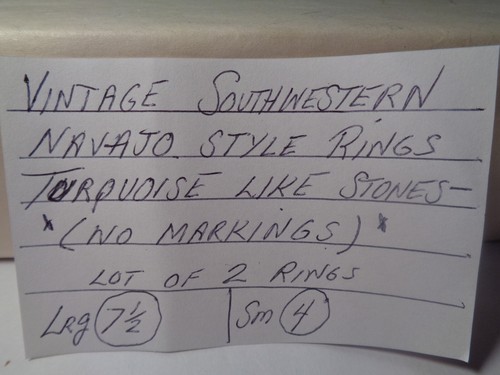 VINTAGE SOUTHWESTERN
NAVAJO STYLE RINGS
TURQUOISE LIKE STONES-
* (NO MARKINGS) *
LOT OF 2 RINGS
Lrg 7½ | Sm 4